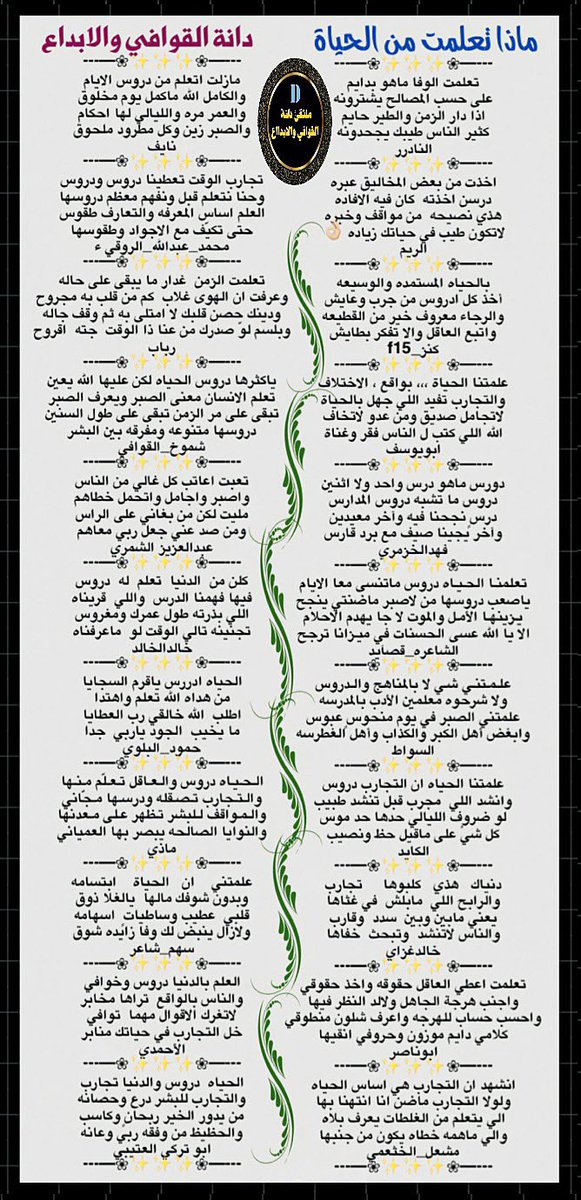 ماذا تعلمت من الحياة
دانة القوافي والابداع
ملتقى دانة
القوافي والابداع
تعلمت الوفا ماهو بدايم
على حسب المصالح يشترونه
اذا دار الزمن والطير حايم
كثير الناس طيبك يجحدونه
النادرر
اخذت من بعض المخاليق عبره
درسن اخذته كان فيه الافاده
هذي نصيحه من مواقف وخبره
لاتكون طيب في حياتك زياده
الريم
بالحياه المستمده والوسيعه
أخذ كل ادروس من جرب وعايش
والرجاء معروف خير من القطيعه
واتبع العاقل والا تفكر بطايش
كنز_f15
علمتنا الحياة ،،، بواقع ، الاختلاف
والتجارب تفيد اللي جهل بالحياة
لاتجامل صديق ومن عدو لاتخاف
الله اللي كتب ل الناس فقر وغناة
أبويوسف
دورس ماهو درس واحد ولا اثنين
دروس ما تشبه دروس المدارس
درس نجحنا فيه وآخر معيدين
وآخر يجينا صيف مع برد قارس
فهدالخزمري
تعلمنا الحياه دروس ماتنسى معا الايام
ياصعب دروسها من لاصبر ماضنتي ينجح
يزينها الأمل والموت لا جا يهدم الاحلام
الا يا الله عسى الحسنات في ميزانا ترجح
الشاعره_قصايد
علمتني شي لا بالمناهج والدروس
ولا شرحوه معلمين الأدب بالمدرسه
علمتني الصبر في يوم منحوس عبوس
وابغض أهل الكبر والكذاب وأهل الغطرسه
السواط
علمتنا الحياه ان التجارب دروس
وانشد اللي مجرب قبل تنشد طبيب
لو ضروف الليالي حدها حد موس
كل شي على ماقيل حظ ونصيب
الكايد
دنياك هذي كلبوها تجارب
والرابح اللي مابلش في غثاها
يعني مابين وبين سدد وقارب
والناس لاتنشد وتبحث خفاها
خالدغزاي
تعلمت اعطي العاقل حقوقه واخذ حقوقي
واجنب هرجة الجاهل ولالد النظر فيها
واحسب حساب للهرجه واعرف شلون منطوقي
كلامي دايم موزون وحروفي انقيها
ابوناصر
انشهد ان التجارب هي اساس الحياه
ولولا التجارب ماضن انا انتهنا بها
الي يتعلم من الغلطات يعرف بلاه
والي ماهمه خطاه يكون من جنبها
مشعل_الخثعمي
مازلت اتعلم من دروس الايام
والكامل الله ماكمل يوم مخلوق
والعمر مره والليالي لها احكام
والصبر زين وكل مطرود ملحوق
نايف
تجارب الوقت تعطينا دروس ودروس
وحنا نتعلم قبل ونفهم معظم دروسها
العلم اساس المعرفه والتعارف طقوس
حتى تكيف مع الاجواد وطقوسها
محمد_عبدالله_الروقي ء
تعلمت الزمن غدار ما يبقى على حاله
وعرفت ان الهوى غلاب كم من قلب به مجروح
ودينك حصن قلبك لا امتلى به ثم وقف جاله
وبلسم لو صدرك من عنا ذا الوقت جته اقروح
رباب
ياكثرها دروس الحياه لكن عليها الله يعين
تعلم الانسان معنى الصبر ويعرف الصبر
تبقى على مر الزمن تبقى على طول السنين
دروسها متنوعه ومفرقه بين البشر
شموخ_القوافي
تعبت اعاتب كل غالي من الناس
واصبر واجامل واتحمل خطاهم
مليت لكن من يغاني على الراس
ومن صد عني جعل ربي معاهم
عبدالعزيز الشمري
كلن من الدنيا تعلم له دروس
فيها فهمنا الدرس واللي قريناه
اللي بذرته طول عمرك ومغروس
تجنينه تالي الوقت لو ماعرفناه
خالدالخالد
الحياه ادررس ياقرم السجايا
من هداه الله تعلم واهتدا
اطلب الله خالقي رب العطايا
ما يخيب الجود ياربي جدا
حمود_البلوي
الحياه دروس والعاقل تعلم منها
والتجارب تصقله ودرسها مجاني
والمواقف للبشر تظهر على معدنها
والنوايا الصالحه يبصر بها العمياني
ماذي
علمتني ان الحياة ابتسامه
وبدون شوفك مالها يالغلا ذوق
قلبي عطيب وساطيات اسهامه
ولازال ينبض لك وفا زايده شوق
سهم_شاعر
العلم بالدنيا دروس وخوافي
والناس بالواقع تراها مخابر
لاتغرك الاقوال مهما توافي
خل التجارب في حياتك منابر
الأحمدي
الحياه دروس والدنيا تجارب
والتجارب للبشر درع وحصانه
من يدور الخير ربحان وكاسب
والحظيظ من وفقه ربي وعانه
ابو تركي العتيبي